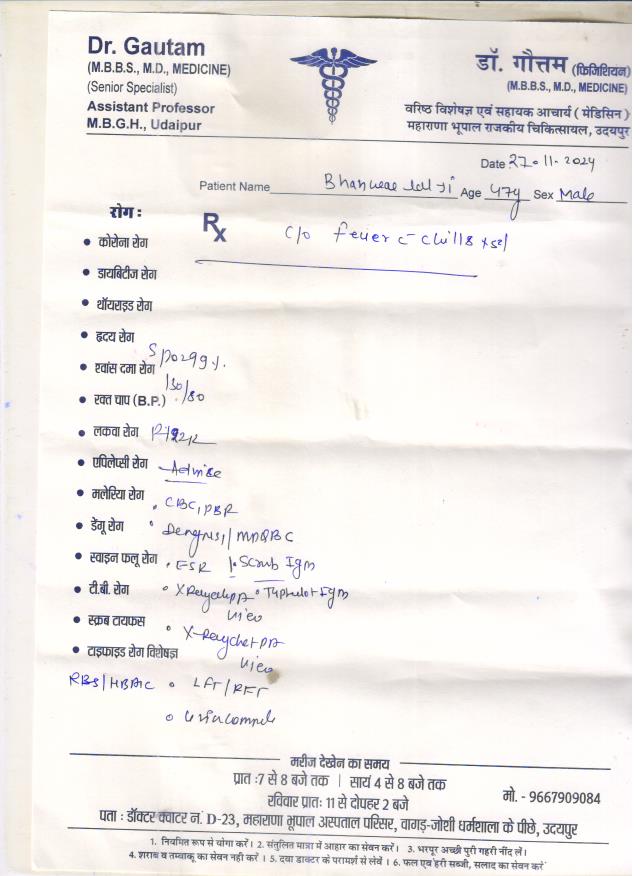 Dr. Gautam
(M.B.B.S., M.D., MEDICINE)
(Senior Specialist)
Assistant Professor
M.B.G.H., Udaipur
डॉ. गौत्तम (फिजिशियन)
(M.B.B.S., M.D., MEDICINE)
वरिष्ठ विशेषज्ञ एवं सहायक आचार्य ( मेडिसिन )
महाराणा भूपाल राजकीय चिकित्सायल, उदयपुर
Date 27.11.2024
Patient Name Age 47y Sex Male
रोग :
Rx c/o fever c chills
• कोरोना रोग
• डायबिटीज रोग
• थॉयराइड रोग
• हृदय रोग
SpO2 99%.
• श्वांस दमा रोग
130/80
• रक्त चाप (B.P.)
• लकवा रोग
• एपिलेप्सी रोग Advise
• मलेरिया रोग CBC, PBF
• डेंगू रोग / MPQBC
• स्वाइन फलू रोग ESR Scrub IgM
• टी.बी. रोग IgM
View
• स्क्रब टायफस X-Ray
• टाइफाइड रोग विशेषज्ञ View
RBS/HBA1C • LFT/RFT
मरीज देखेन का समय
प्रात :7 से 8 बजे तक | सायं 4 से 8 बजे तक
रविवार प्रातः 11 से दोपहर 2 बजे
मो. - 9667909084
पता : डॉक्टर क्वाटर नं. D-23, महाराणा भूपाल अस्पताल परिसर, वागड़-जोशी धर्मशाला के पीछे, उदयपुर
1. नियमित रूप से योगा करें। 2. संतुलित मात्रा में आहार का सेवन करें। 3. भरपूर अच्छी पुरी गहरी नींद लें।
4. शराब व तम्बाकू का सेवन नही करें । 5. दवा डाक्टर के परामर्श से लेवें । 6. फल एवं हरी सब्जी, सलाद का सेवन करें